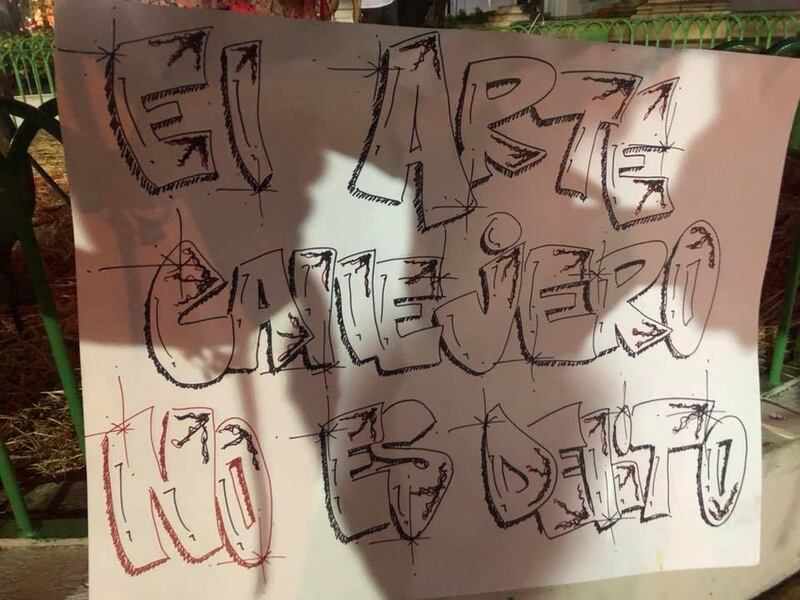 El ARTE
CALLEJERO
NO ES DELITO